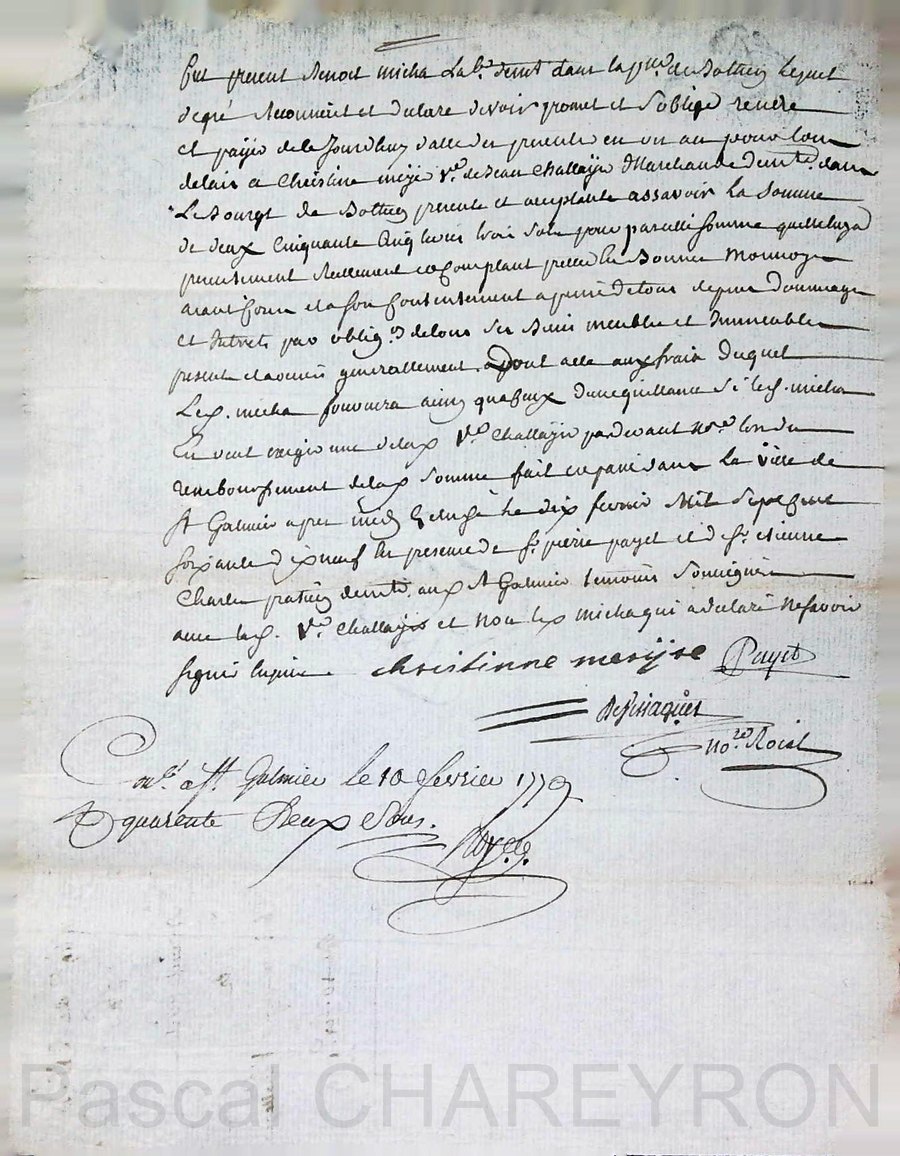 fut present Benoit micha Lab.r demt dans la p.sse de Bothéon Lequel
de gré Reconnoit et declare devoir promet et s'oblige rendre
et payer de ce Jourdhuy datte des presente en un an pour tout
delais a Christine v.e de Jean Challaye Marchande demte dans
Le Bourgt de Bothéon presente et acceptante assavoir La Somme
de deux Cinquante Cinq livres trois sols pour pareille somme quelle luy a
presentement Reellement et Comptant prette En Bonne Monnoye
ayant Cours et a son Contentement a peine de tous depens Dommage
et Interets par oblig.on de tous ses Biens meubles et Immeubles
present et avenir generallement dont acte aux frais Duquel
Led. micha fournira ainsy qua Ceux dune quittance Si led. micha
En veut exiger une de lad. V.e Challaye pardevant no.re lors du
remboursement de lad. somme fait et passé dans La Ville de
St Galmier apres midy Le dix fevrier Mil Sept Cent
soixante dixneuf En presence de Sr. pierre payet et de Sr. etienne
Charle praticien demts aud. St Galmier temoins Soussignés
avec lad. V.e Challaye et Non led. micha qui a declaré Ne savoir
signer Enquis christinne Payet
no.re Roial
Con.lé a St. Galmier le 10 fevrier 1779
R quarente Deux Sous.
Pascal CHAREYRON